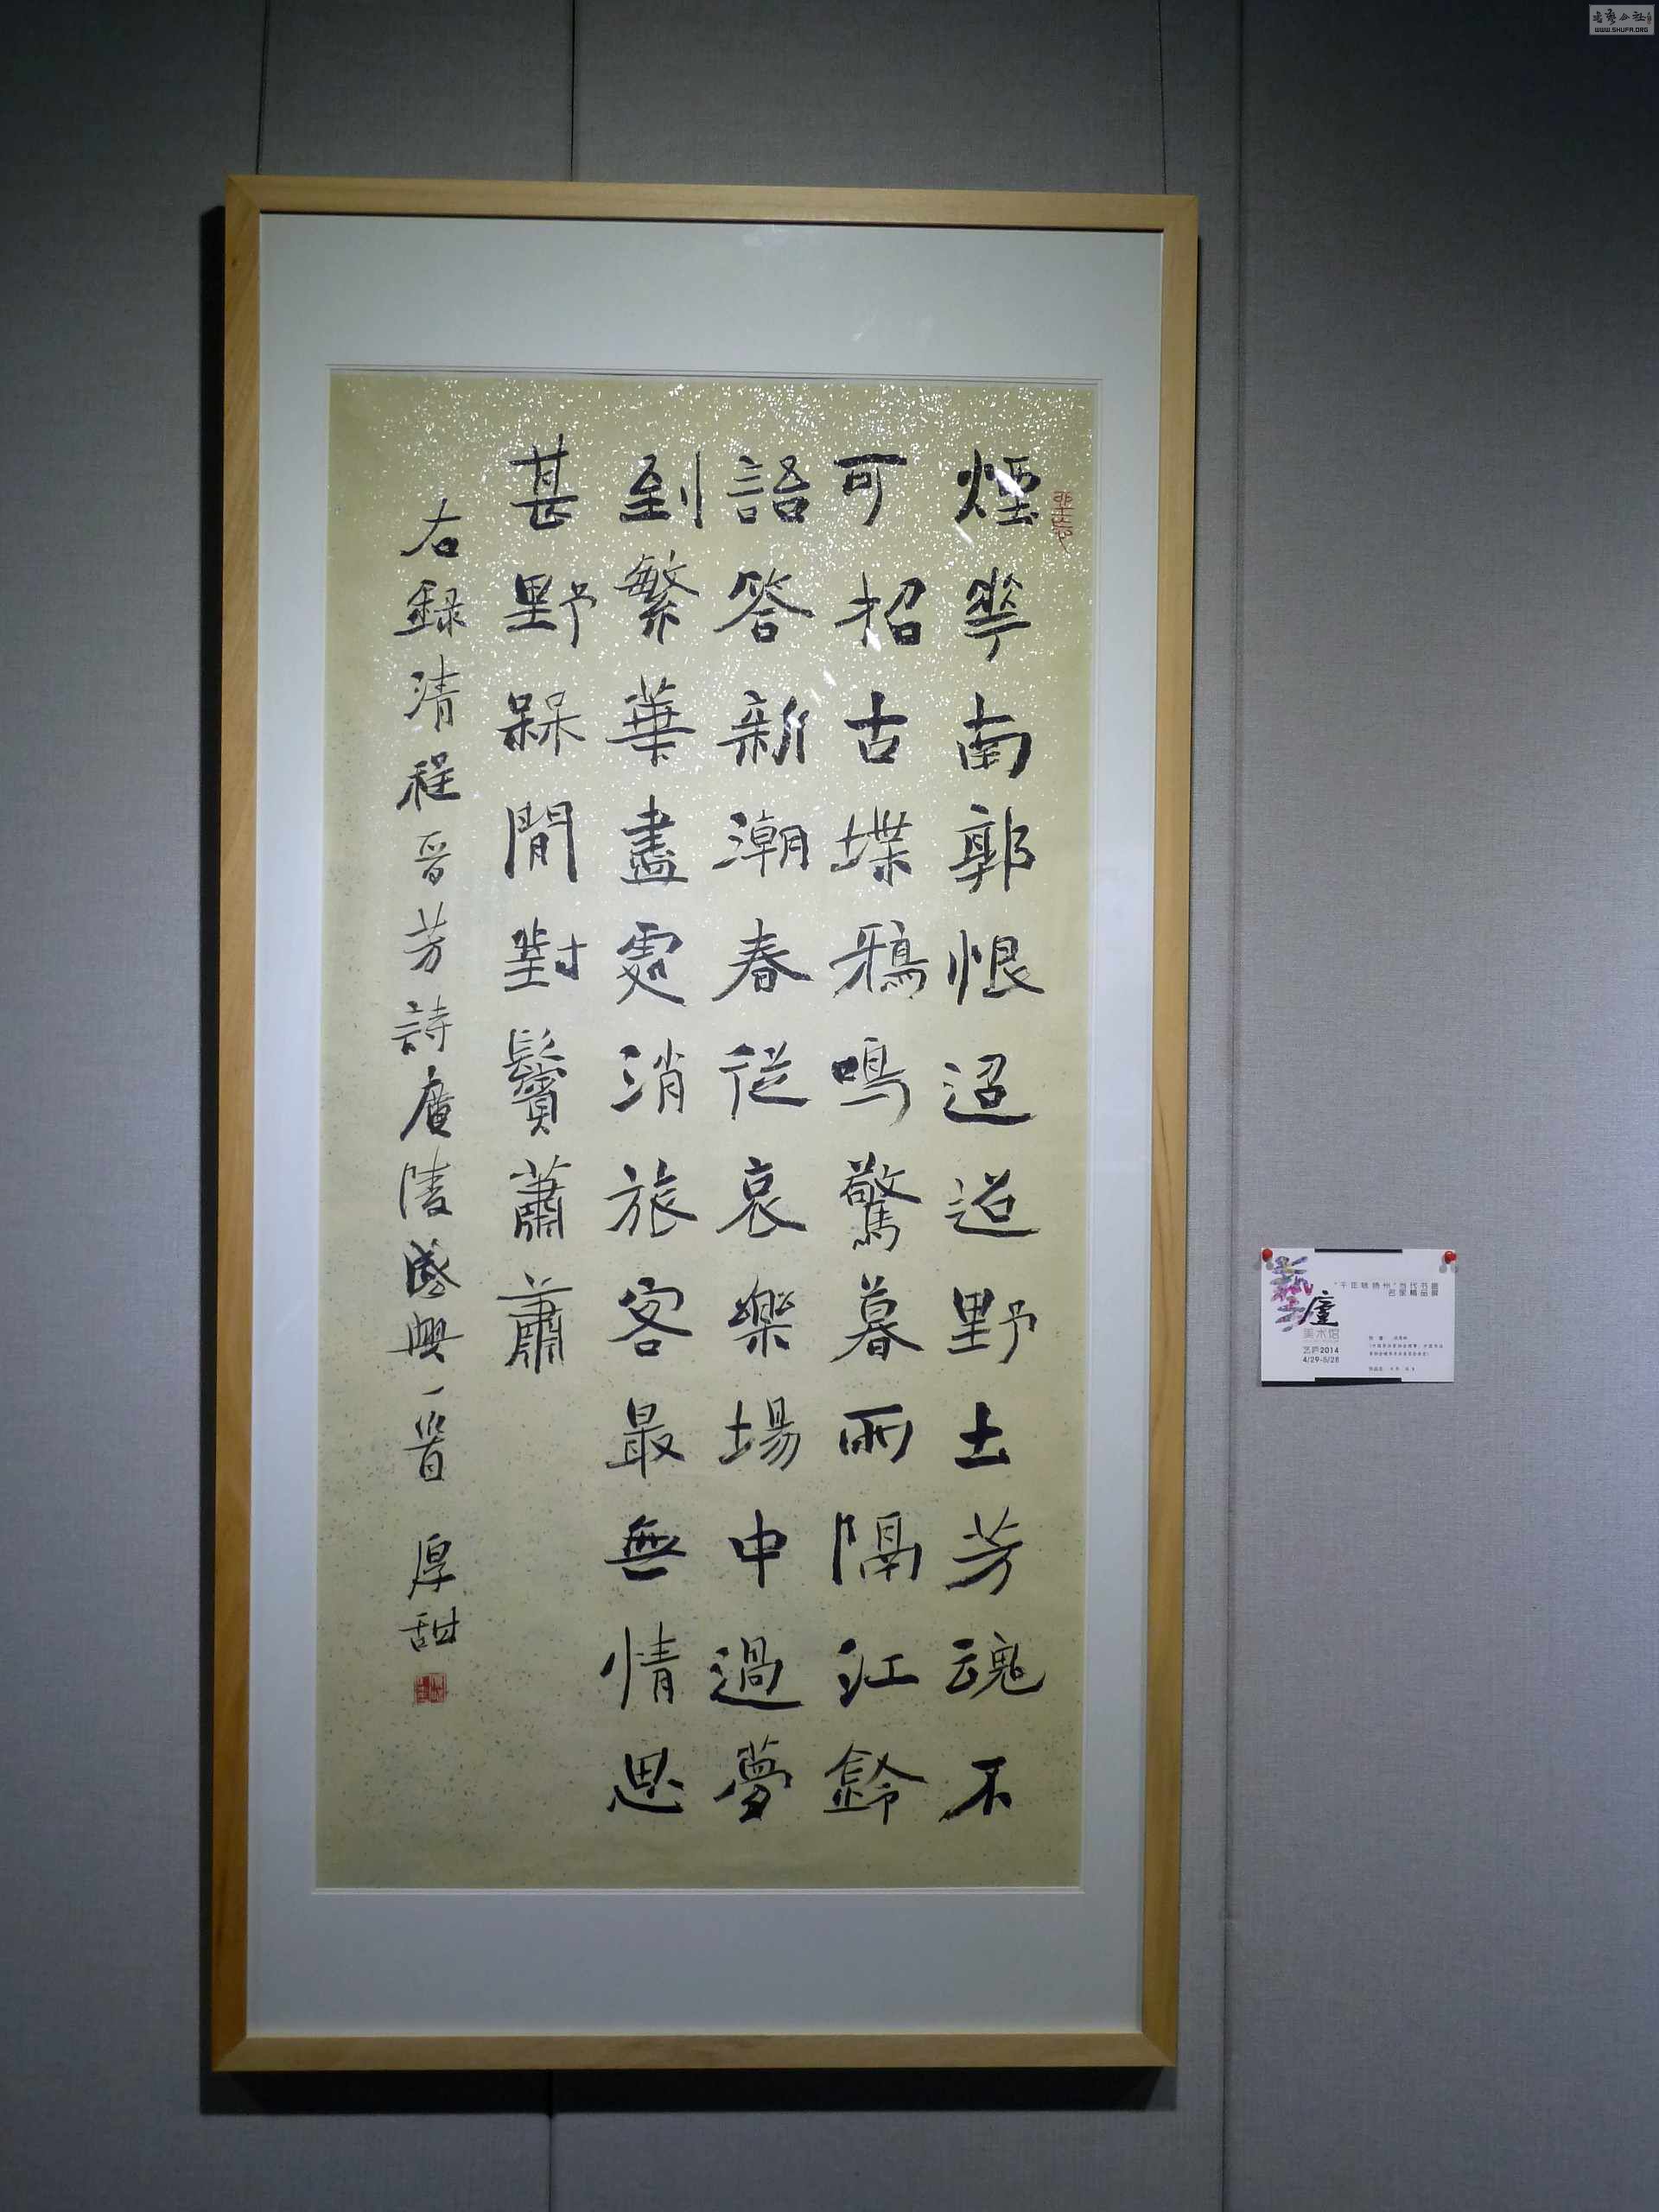 煙華南郭恨迢迢野土芳魂不
可招古堞鴉鳴驚暮雨隔江鈴
語答新潮春從哀樂場中過夢
到繁華盡處消旅客最無情思
甚野槑閒對鬢蕭蕭
右録清程晉芳詩廣陵感興一首 厚甜
美术馆
艺庐2014
4/29-5/28
当代书画
名家精品展
WWW.SHUFA.ORG